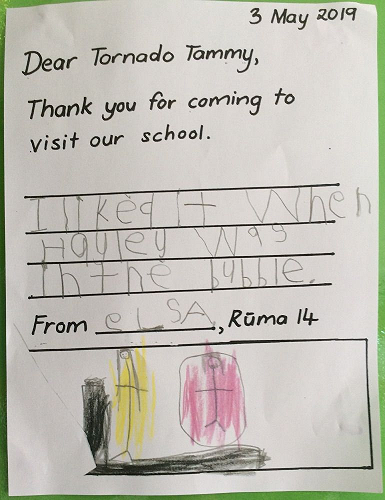 3 May 2019
Dear Tornado Tammy,
Thank you for coming to
visit our school.
I liked it When
Hayley Was
In the bubble.
From eLSA, Rūma 14